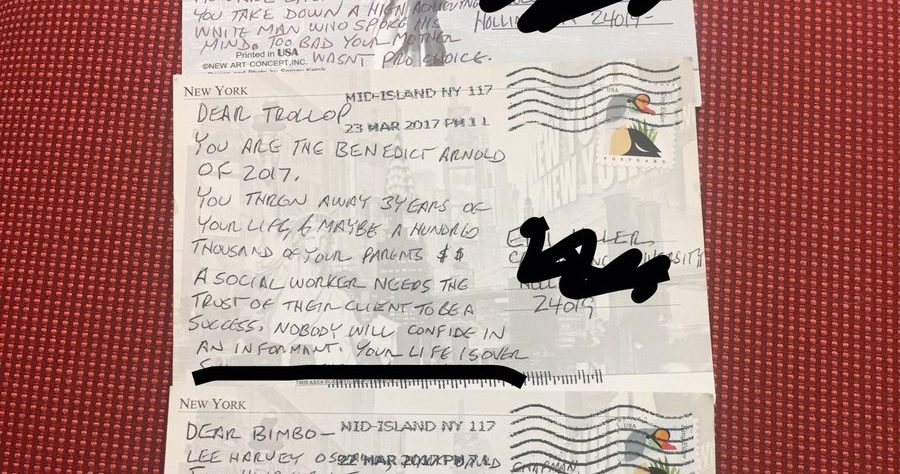 YOU TAKE DOWN A HIGH ACHIEVING
WHITE MAN WHO SPOKE HIS
MIND. TOO BAD YOUR MOTHER
WASNT PRO CHOICE.
24019
Printed in USA
©NEW ART CONCEPT,INC.
NEW YORK
MID-ISLAND NY 117
23 MAR 2017 PM 1 L
USA
POSTCARD
DEAR TROLLOP
YOU ARE THE BENEDICT ARNOLD
OF 2017.
YOU THREW AWAY 3 YEARS OF
YOUR LIFE, & MAYBE A HUNDRED
THOUSAND OF YOUR PARENTS $$
A SOCIAL WORKER NEEDS THE
TRUST OF THEIR CLIENT TO BE A
SUCCESS. NOBODY WILL CONFIDE IN
AN INFORMANT. YOUR LIFE IS OVER
24019
NEW YORK
MID-ISLAND NY 117
22 MAR 2017 PM 7 L
USA
DEAR BIMBO—
LEE HARVEY